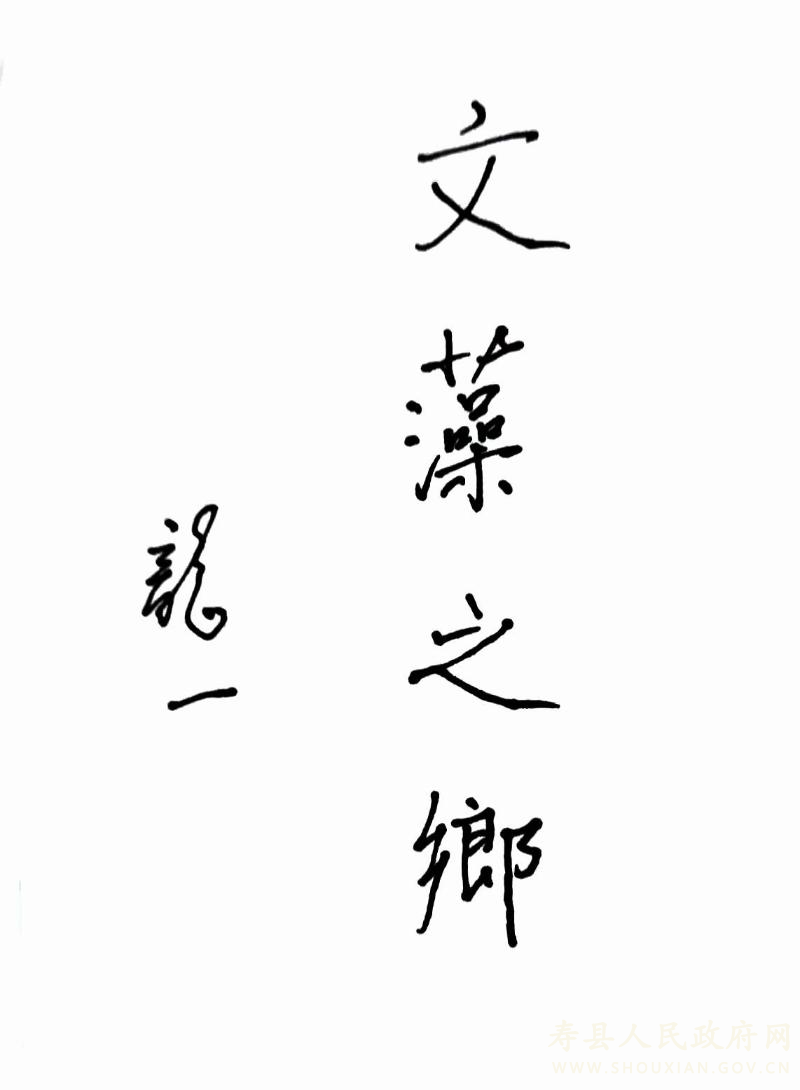 文藻之鄉
龍一
寿县人民政府网
WWW.SHOUXIAN.GOV.CN